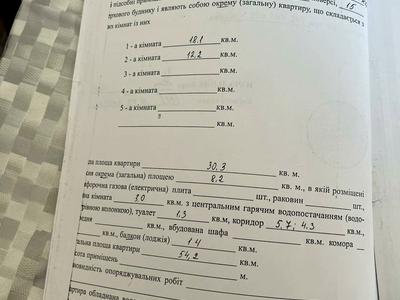 і підсобні
поверсі, 15
окрему (загальну) квартиру, що складається з
кімнат із них
1 - а кімната 18.1 кв.м.
2 - а кімната 12.2 кв.м.
3 - а кімната кв.м.
4 - а кімната кв.м.
5 - а кімната кв.м.
кв.м.
площа квартири 30.3 кв. м.
окрема (загальна) площею 8.2 кв. м., в якій розміщені
газова (електрична) плита шт., раковин шт.,
кімната 3.0 кв. м. з центральним гарячим водопостачанням (водо-
колонкою), туалет 1.3 кв.м, коридор 5.7; 4.3 кв.м.,
кв.м., вбудована шафа кв.м. комора
кв.м., балкон (лоджія) 1.4 кв.м.
площа квартири 54.2 кв. м.
приміщень м.
опоряджувальних робіт
обладнана